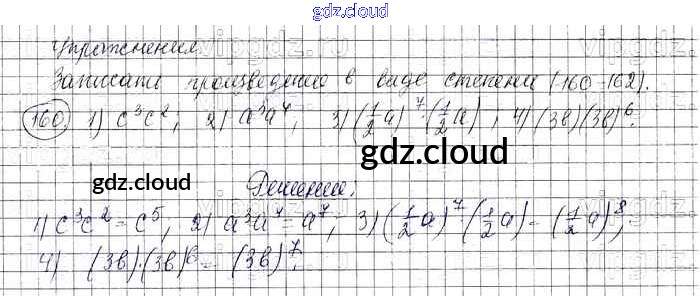 gdz.cloud
Упражнения
Записать произведение в виде степени (160-162).
160. 1) c³c²; 2) a³a⁴; 3) (1/2 a)⁷·(1/2 a); 4) (3в)(3в)⁶.
gdz.cloud
gdz.cloud
Решение:
1) c³c² = c⁵; 2) a³a⁷ = a⁷; 3) (1/2 a)⁷(1/2 a) = (1/2 a)⁸;
4) (3в)·(3в)⁶ = (3в)⁷.
gdz.cloud